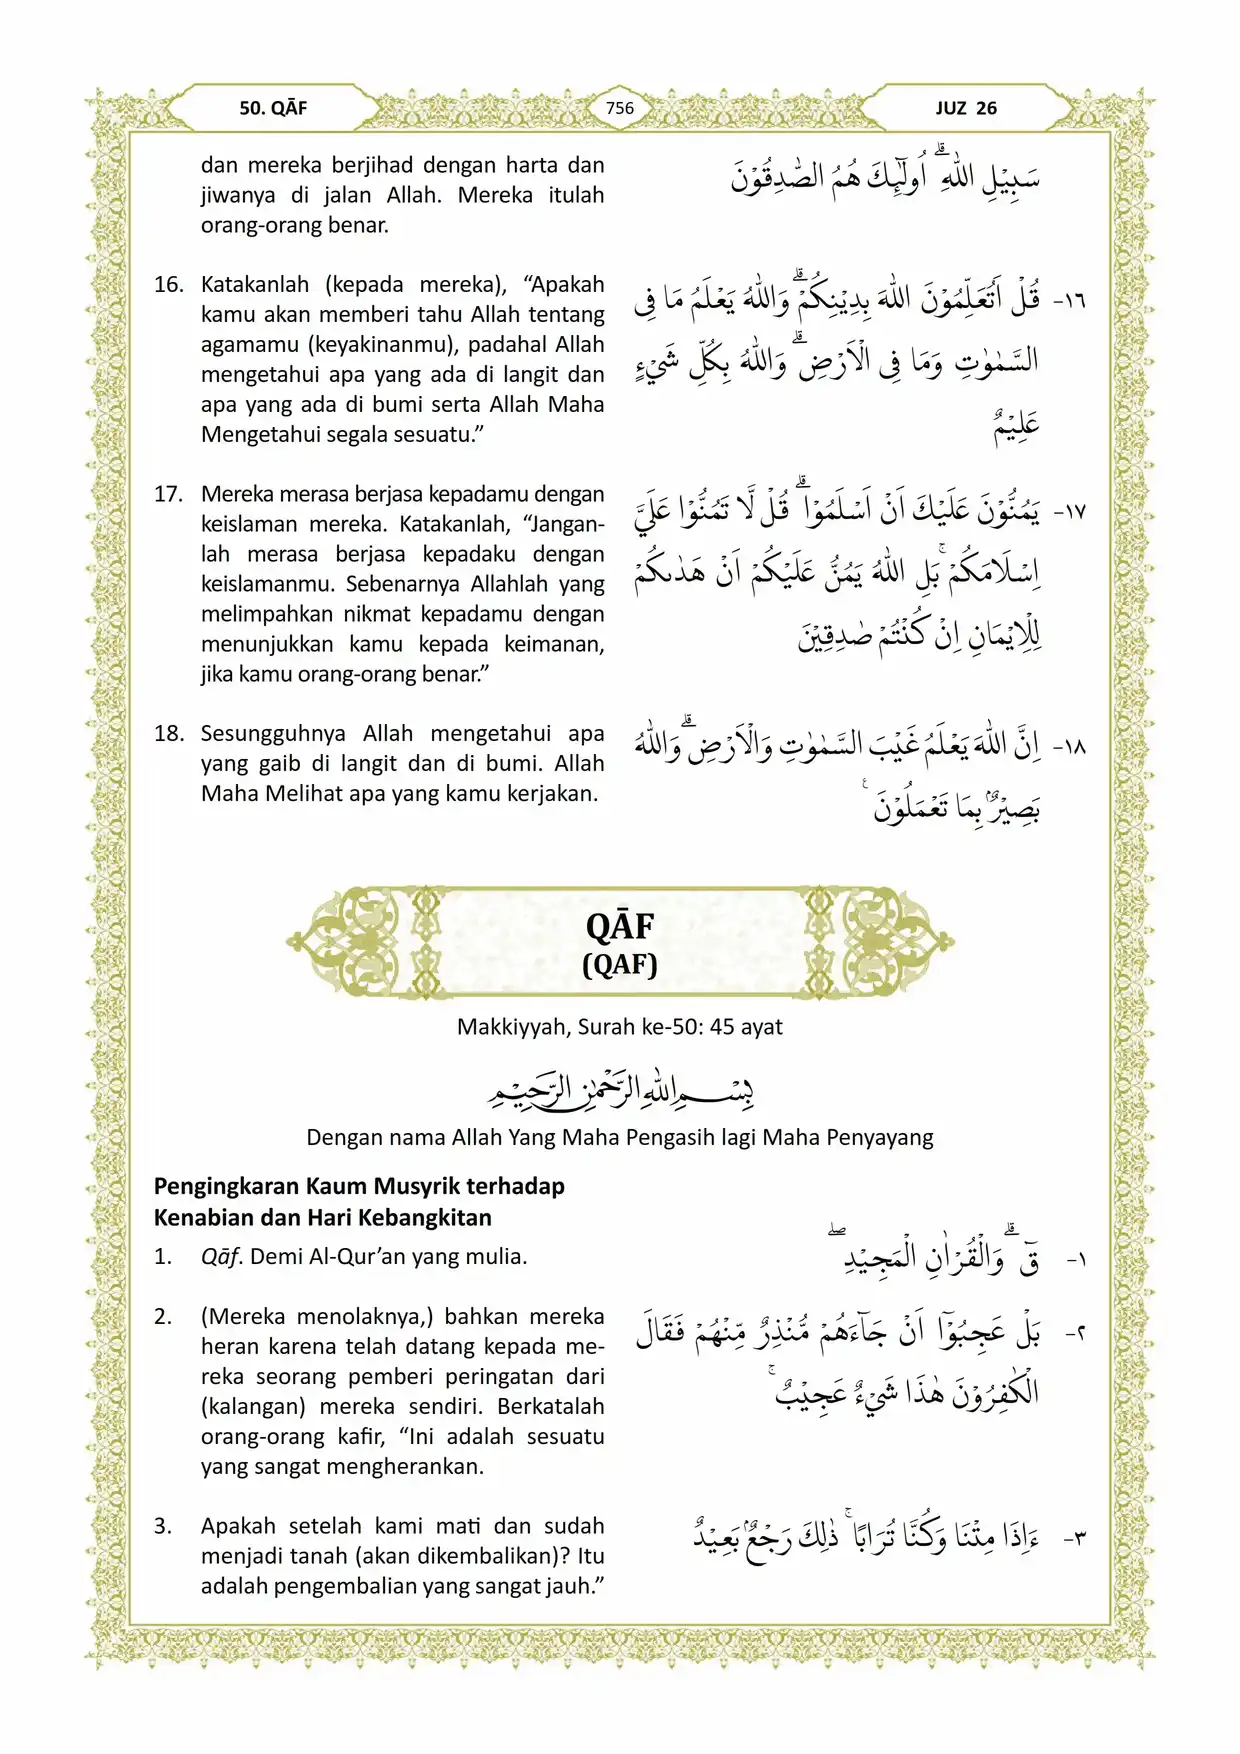 50. QĀF
756
JUZ 26
dan mereka berjihad dengan harta dan
jiwanya di jalan Allah. Mereka itulah
orang-orang benar.
سَبِيْلِ اللّٰهِ ۗ اُولٰۤىِٕكَ هُمُ الصّٰدِقُوْنَ
16. Katakanlah (kepada mereka), “Apakah
kamu akan memberi tahu Allah tentang
agamamu (keyakinanmu), padahal Allah
mengetahui apa yang ada di langit dan
apa yang ada di bumi serta Allah Maha
Mengetahui segala sesuatu.”
١٦- قُلْ اَتُعَلِّمُوْنَ اللّٰهَ بِدِيْنِكُمْۗ وَاللّٰهُ يَعْلَمُ مَا فِى
السَّمٰوٰتِ وَمَا فِى الْاَرْضِۗ وَاللّٰهُ بِكُلِّ شَيْءٍ
عَلِيْمٌ
17. Mereka merasa berjasa kepadamu dengan
keislaman mereka. Katakanlah, “Jangan-
lah merasa berjasa kepadaku dengan
keislamanmu. Sebenarnya Allahlah yang
melimpahkan nikmat kepadamu dengan
menunjukkan kamu kepada keimanan,
jika kamu orang-orang benar.”
١٧- يَمُنُّوْنَ عَلَيْكَ اَنْ اَسْلَمُوْا ۗ قُلْ لَّا تَمُنُّوْا عَلَيَّ
اِسْلَامَكُمْ ۚ بَلِ اللّٰهُ يَمُنُّ عَلَيْكُمْ اَنْ هَدٰىكُمْ
لِلْاِيْمَانِ اِنْ كُنْتُمْ صٰدِقِيْنَ
18. Sesungguhnya Allah mengetahui apa
yang gaib di langit dan di bumi. Allah
Maha Melihat apa yang kamu kerjakan.
١٨- اِنَّ اللّٰهَ يَعْلَمُ غَيْبَ السَّمٰوٰتِ وَالْاَرْضِۗ وَاللّٰهُ
بَصِيْرٌۢ بِمَا تَعْمَلُوْنَ ࣖ
QĀF
(QAF)
Makkiyyah, Surah ke-50: 45 ayat
بِسْمِ اللّٰهِ الرَّحْمٰنِ الرَّحِيْمِ
Dengan nama Allah Yang Maha Pengasih lagi Maha Penyayang
Pengingkaran Kaum Musyrik terhadap
Kenabian dan Hari Kebangkitan
1. Qāf. Demi Al-Qur’an yang mulia.
١- قۤ ۗ وَالْقُرْاٰنِ الْمَجِيْدِ ۖ
2. (Mereka menolaknya,) bahkan mereka
heran karena telah datang kepada me-
reka seorang pemberi peringatan dari
(kalangan) mereka sendiri. Berkatalah
orang-orang kafir, “Ini adalah sesuatu
yang sangat mengherankan.
٢- بَلْ عَجِبُوْٓا اَنْ جَاۤءَهُمْ مُّنْذِرٌ مِّنْهُمْ فَقَالَ
الْكٰفِرُوْنَ هٰذَا شَيْءٌ عَجِيْبٌ ۚ
3. Apakah setelah kami mati dan sudah
menjadi tanah (akan dikembalikan)? Itu
adalah pengembalian yang sangat jauh.”
٣- ءَاِذَا مِتْنَا وَكُنَّا تُرَابًا ۚ ذٰلِكَ رَجْعٌۢ بَعِيْدٌ